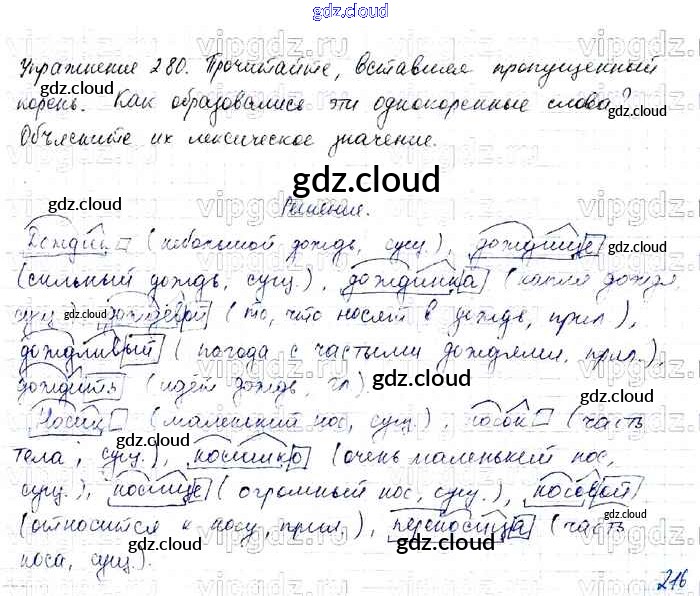 gdz.cloud
Упражнение 280. Прочитайте, вставляя пропущенный
корень. Как образовались эти однокоренные слова?
Объясните их лексическое значение.
gdz.cloud
Решение.
Дождик (небольшой дождь, сущ.), дождище
(сильный дождь, сущ.), дождинка (капля дождя,
сущ.), дождевой (то, что носят в дождь, прил.),
дождливый (погода с частыми дождями, прил.),
дождить (идёт дождь, гл.).
Носик (маленький нос, сущ.), носок (часть
тела, сущ.), носишко (очень маленький нос,
сущ.), носище (огромный нос, сущ.), носовой
(относится к носу, прил.), переносица (часть
носа, сущ.).
216